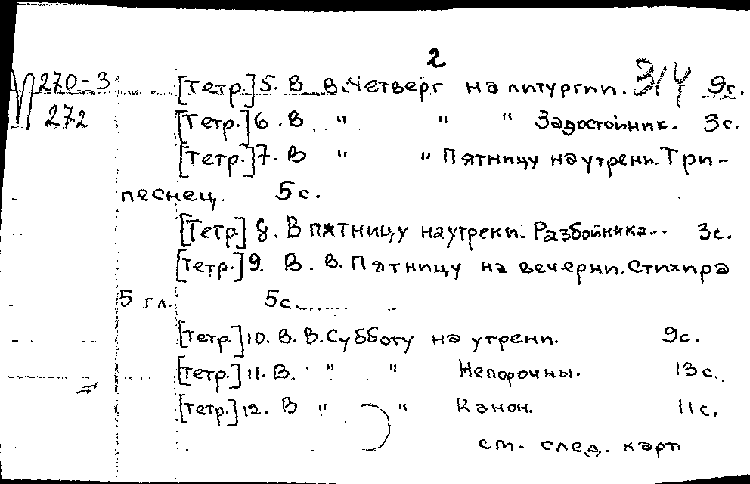 2
270-3 [Тетр.] 5. В В. Четверг на литургии. 3/4 9с.
272 [Тетр.] 6. В " " " Задостойник. 3с.
[Тетр.] 7. В " " Пятницу на утрени. Три-
песнец. 5с.
[Тетр.] 8. В пятницу на утрени. Разбойника.. 3с.
[Тетр.] 9. В. В. Пятницу на вечерни. Стихира
5 гл. 5с.
[Тетр.] 10. В. В. Субботу на утрени. 9с.
[Тетр.] 11. В. " " Непорочны. 13с.
[Тетр.] 12. В " " Канон. 11с.
см. след. карт